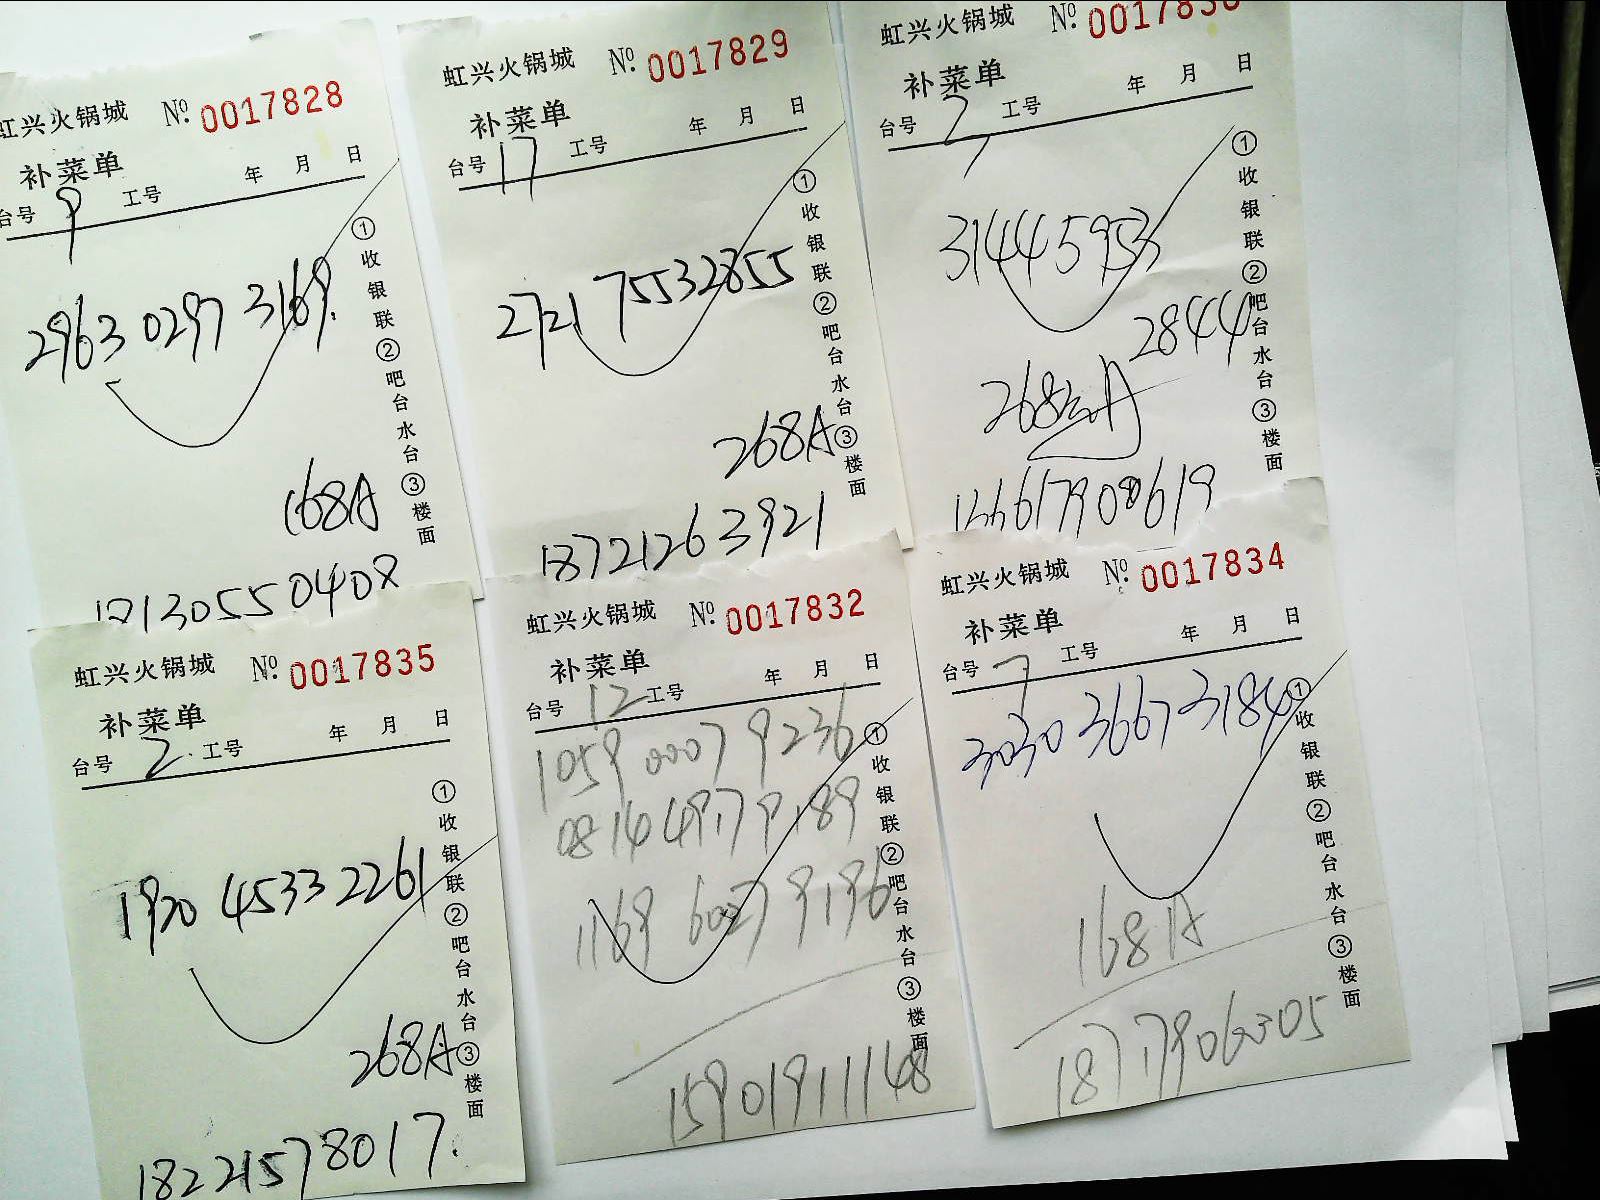 虹兴火锅城 № 0017828
补菜单
台号 9 工号 年 月 日
2963 0297 3169.
168A
①收银联②吧台水台③楼面
虹兴火锅城 № 0017829
补菜单
台号 17 工号 年 月 日
2721 75532855
268A
18721263921
①收银联②吧台水台③楼面
虹兴火锅城 №
补菜单
台号 工号 年 月 日
2844
①收银联②吧台水台③楼面
虹兴火锅城 № 0017835
补菜单
台号 2 工号 年 月 日
1920 4533 2261
268A
18221578017.
①收银联②吧台水台③楼面
虹兴火锅城 № 0017832
补菜单
台号 12 工号 年 月 日
1059 0007 9236
0814 0497 9189
1169 6027 9196
15901911148
①收银联②吧台水台③楼面
虹兴火锅城 № 0017834
补菜单
台号 7 工号 年 月 日
3030 3667 3184
168A
18717906305
①收银联②吧台水台③楼面